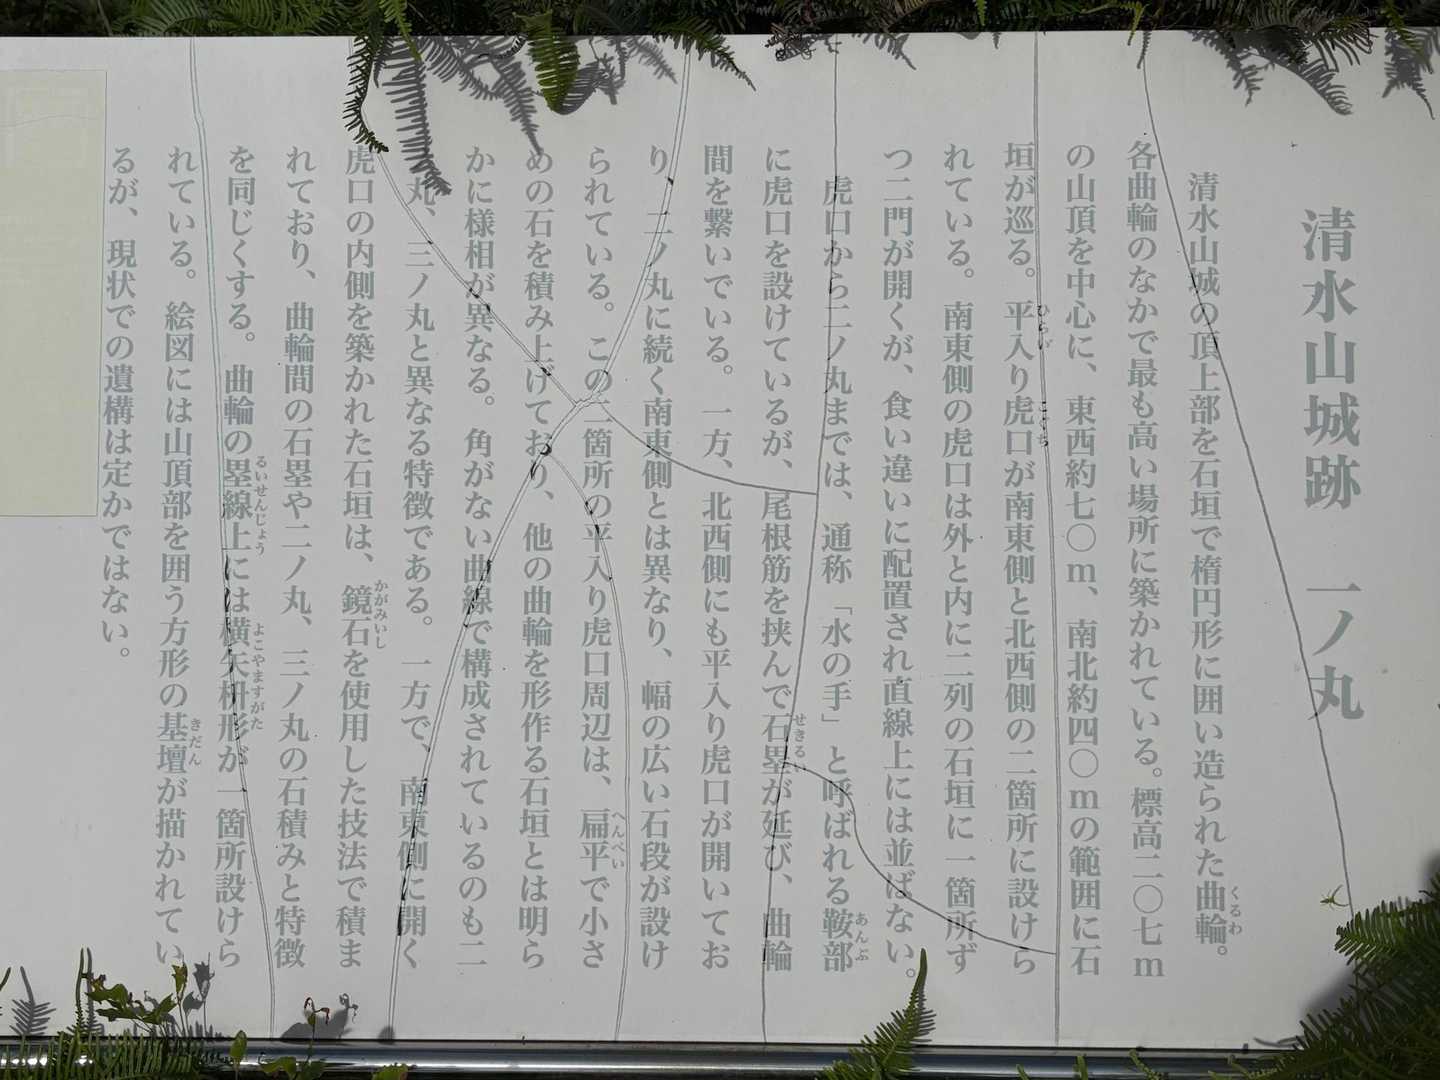 清水山城跡　一ノ丸
清水山城の頂上部を石垣で楕円形に囲い造られた曲輪。
各曲輪のなかで最も高い場所に築かれている。標高二〇七m
の山頂を中心に、東西約七〇m、南北約四〇mの範囲に石
垣が巡る。平入り虎口が南東側と北西側の二箇所に設けら
れている。南東側の虎口は外と内に二列の石垣に一箇所ず
つ二門が開くが、食い違いに配置され直線上には並ばない。
虎口から二ノ丸までは、通称「水の手」と呼ばれる鞍部
に虎口を設けているが、尾根筋を挟んで石塁が延び、曲輪
間を繋いでいる。一方、北西側にも平入り虎口が開いてお
り、二ノ丸に続く南東側とは異なり、幅の広い石段が設け
られている。この二箇所の平入り虎口周辺は、扁平で小さ
めの石を積み上げており、他の曲輪を形作る石垣とは明ら
かに様相が異なる。角がない曲線で構成されているのも二
ノ丸、三ノ丸と異なる特徴である。一方で、南東側に開く
虎口の内側を築かれた石垣は、鏡石を使用した技法で積ま
れており、曲輪間の石塁や二ノ丸、三ノ丸の石積みと特徴
を同じくする。曲輪の塁線上には横矢枡形が一箇所設けら
れている。絵図には山頂部を囲う方形の基壇が描かれてい
るが、現状での遺構は定かではない。
くるわ
ひらい
こぐち
あんぶ
せきるい
へんぺい
かがみいし
るいせんじょう
よこやますがた
きだん